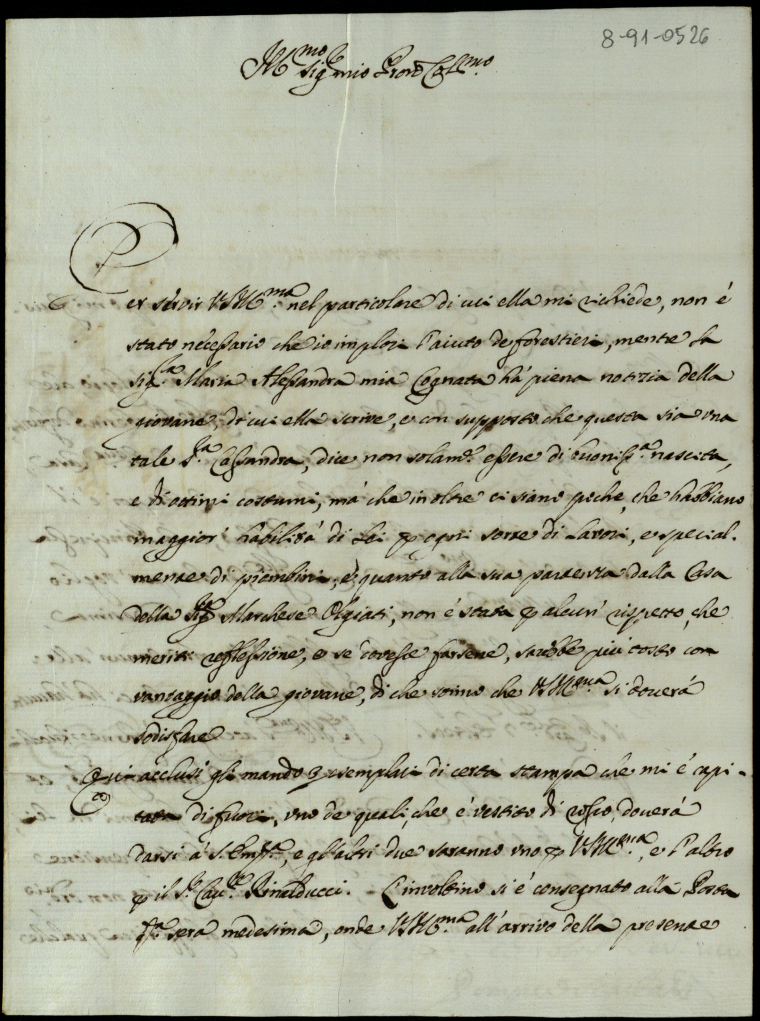 8-91-0526
Ill.mo Sig.re mio Pron Coll.mo
Per servir VSIll.ma nel particolare di cui ella mi richiede, non é
stato necessario che io implori l'aiuto de forestieri, mentre la
Sig.ra Maria Alessandra mia Cognata há piena notizia della
giovane, di cui ella scrive, e con supposto che questa sia una
tale S.ra Cassandra, dice non solam.e essere di buoniss.a nascita,
e di ottimi costumi, má che in oltre ci siano poche, che habbiano
maggior habilitá di Lei p ogni sorte di Lavori, e special-
mente di piombini, e quanto alla sua partenza dalla Casa
della Sig.ra Marchese Olgiati, non é stata p alcun rispetto, che
meriti reflessione, e se dovesse farsene, sarebbe più tosto con
vantaggio della giovane, di che stimo che VSIll.ma si doverá
sodisfare
Qui acclusi gli mando 3 esemplari di certa stampa che mi é capi-
tata di fuori, uno de quali, che é vestito di rosso, doverá
darsi á S. Em.za, e gl'altri due saranno uno p VSIll.ma, e l'altro
p il S.r Cav.re Rinalducci. L'involtino si é consegnato alla Posta
q.ta sera medesima, onde VSIll.ma all'arrivo della presente